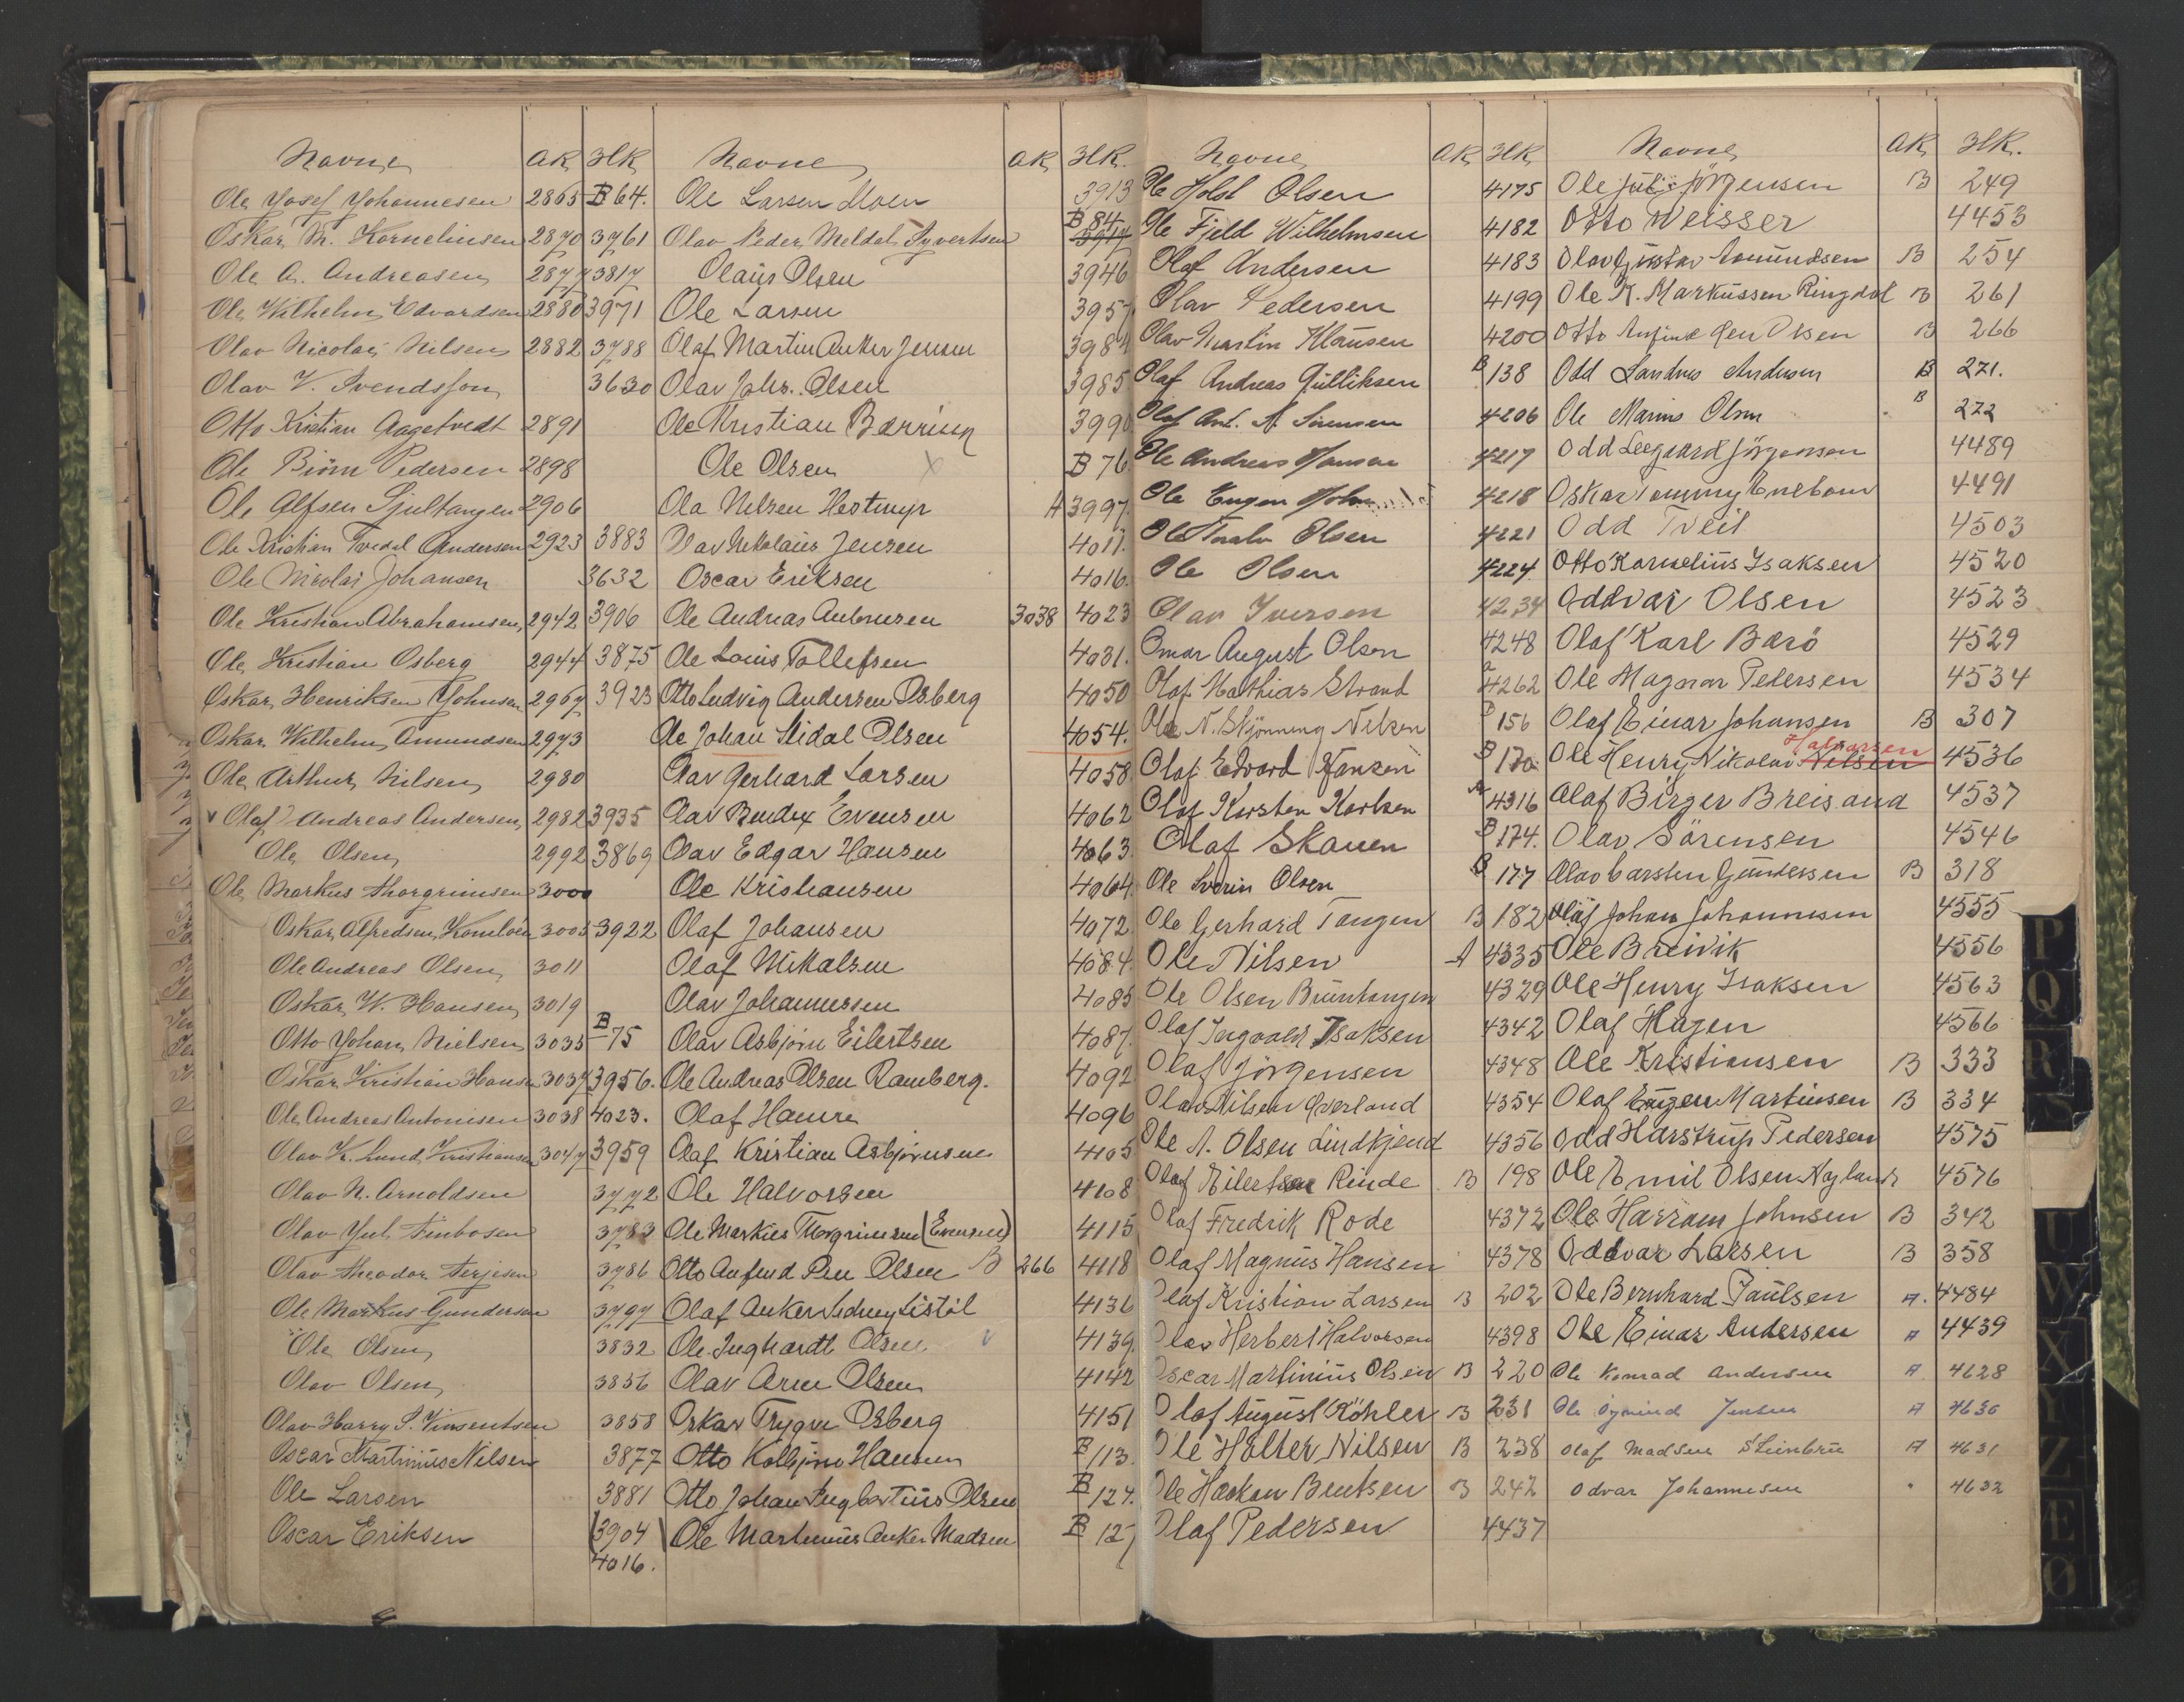 Navne AR HR
Ole Josef Johannesen 2865 B 64.
Oskar M. Korneliusen 2870 3761
Ole A. Andreasen 2877 3817
Ole Wilhelm Edvardsen 2880 3971
Olav Nicolai Nilsen 2882 3788
Olav V. Svendsson 3630
Otto Kristian Aagetvedt 2891
Ole Biørn Pedersen 2898
Ole Alfsen 2906
Ole Kristian Tvedal Andersen 2923 3883
Ole Nicolai Johansen 3632
Ole Kristian Abrahamsen 2942 3906
Ole Kristian Osberg 2944 3875
Oskar Henriksen Johnsen 2967 3923
Oskar Wilhelm Amundsen 2973
Ole Arthur Nilsen 2980
v Olaf Andreas Andersen 2982 3935
Ole Olsen 2992 3869
Ole Markus Thorgrimsen 3000
Oskar Alfredsen 3005 3922
Ole Andreas Olsen 3011
Oskar W. Hansen 3019
Otto Johan Nielsen 3035 B 75
Oskar Kristian Hansen 3037 3956.
Ole Andreas Antonisen 3038 4023.
Olav K. Lund Kristiansen 3047 3959
Olav N. Arnoldsen 3772
Olav Jul. 3783
Olav Theodor Terjesen 3786
Ole Markus Gundersen 3797
Ole Olsen 3832
Olav Olsen 3856
Olav Harry S. Vinsentsen 3858
Oscar Martinius Nilsen 3877
Ole Larsen 3881
Oscar Eriksen 3904
4016.
Navne AR HR.
Ole Larsen Moen 3913
Olav Peder Meldal Syvertsen B 84 3917
Olaus Olsen 3946
Ole Larsen 3957
Olaf Martin Anker Jensen 3984
Olav Johs. Olsen 3985
Ole Kristian 3990
Ole Olsen X B 76
Ola Nelsen Hestmyr A 3997
Olav Nikolaus Jensen 4011.
Oscar Eriksen 4016.
Ole Andreas Antonsen 3038 4023
Ole Louis Tollefsen 4031.
Otto Ludvig Andersen Osberg 4050
Ole Johan Olsen 4054.
Olav Gerhard Larsen 4058
Olav Bendix Evensen 4062
Olav Edgar Hansen 4063.
Ole Kristiansen 4064
Olaf Johansen 4072
Olaf Mikalsen 4084.
Olav Johannessen 4085
Olav Asbjørn Eilertsen 4087.
Ole Andreas Olsen Ramberg. 4092
Olaf Hanre 4096
Olaf Kristian Asbjørnsen 4105
Ole Halvorsen 4108
Ole Markus Thorgrimsen (Evensen) 4115
Otto Anfind Olsen B 266 4118
Olaf Anker 4136
Ole Inghardt Olsen v 4139
Olav Arne Olsen 4142
Oskar Trygve Osberg 4151
Otto Kolbjørn Hansen B 113.
Otto Johan Ingbartius Olsen B 124.
Ole Martinius Anker Madsen B 127
Navne AR HR
Ole Holst Olsen 4175
Ole Fjeld Wilhelmsen 4182
Olaf Andersen 4183
Olav Pedersen 4199
Olav Martin Klausen 4200
Olaf Andreas Gulliksen B 138
Olaf Ant. A. Sörensen 4206
Ole Andreas Hansen 4217
Ole Eugen 4218
Ole Olsen 4221
Ole Olsen 4224
Olav Iversen 4234
Omar August Olsen 4248
Olaf Mathias Strand 4262
Ole N. Skjönning Nelsen B 156
Olaf Edvard Hansen B 170
Olaf Karsten Karlsen A 4316
Olaf Skauen B 174.
Ole Severin Olsen B 177
Ole Gerhard Tangen B 182
Ole Nilsen A 4335
Ole Olsen Bruntangen 4329
Olaf Ingvald Isaksen 4342
Olaf Jörgensen 4348
Olav Nilsen Överland 4354
Ole A. Olsen Lindkjend 4356
Olaf Eilertsen Rinde B 198
Olaf Fredrik Rode 4372
Olaf Magnus Hansen 4378
Olaf Kristian Larsen B 202
Olav Herbert Halvorsen 4398
Oscar Martinius Olsen B 220
Olaf August Köhler B 231
Ole Holter Nilsen B 238
Ole Haakon Bentsen B 242
Olaf Pedersen 4437
Navne AR HR.
Ole Juli Jörgensen B 249
Otto Weisser 4453
Olav Gustav Amundsen B 254
Ole K. Markussen Ringdal B 261
Otto Anfind Olsen B 266
Odd Landnes Andersen B 271.
Ole Marius Olsen B 272
Odd Leegaard Jörgensen 4489
Oskar Tommy Enebom 4491
Odd Tveit 4503
Otto Kornelius Isaksen 4520
Oddvar Olsen 4523
Olaf Karl Barö 4529
Ole Magnar Pedersen 4534
Olaf Einar Johansen B 307
Ole Henry Nikolai Nilsen Halvorsen 4536
Olaf Birger Breisand 4537
Olav Sörensen 4546
Olav Carsten Gundersen B 318
Olaf Johan Johannesen 4555
Ole Breivik 4556
Ole Henry Isaksen 4563
Olaf Hagen 4566
Ole Kristiansen B 333
Olaf Eugen Martinsen B 334
Odd Harstrup Pedersen 4575
Ole Emil Olsen Nyland 4576
Ole Harram Johnsen B 342
Oddvar Larsen B 358
Ole Bernhard Paulsen A. 4484
Ole Einar Andersen A 4439
Ole Konrad Andersen A 4628
Ole Öyvind Jensen A 4630
Olaf Madsen Steinbru A 4631
Odvar Johannesen " 4632
P
Q
R
S
U
W
X
Y
Z
Æ
Ø